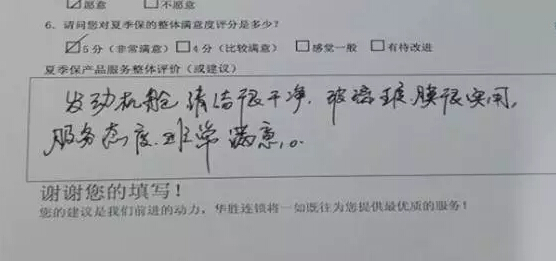 ☑愿意 □不愿意
6. 请问您对夏季保的整体满意度评分是多少?
☑5分(非常满意) □4分(比较满意) □感觉一般 □有待改进
夏季保产品服务整体评价(或建议)
发动机舱清洁很干净,玻璃镀膜很实用,
服务态度非常满意。
谢谢您的填写!
您的建议是我们前进的动力,华胜连锁将一如既往为您提供最优质的服务!